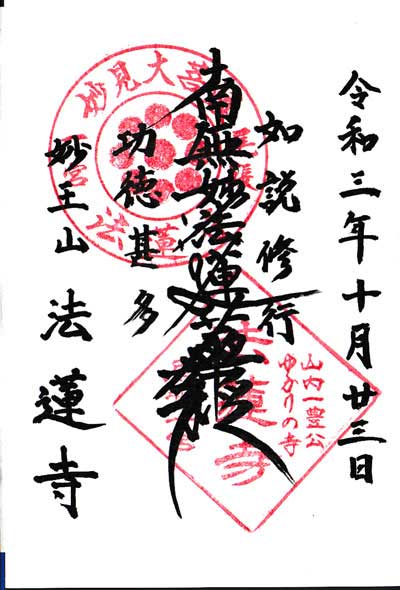 令和三年十月廿三日
如説修行
南無妙法蓮華経
功徳甚多
妙王山 法蓮寺
妙見大菩
法蓮
山内一豊公
ゆかりの寺
法蓮寺